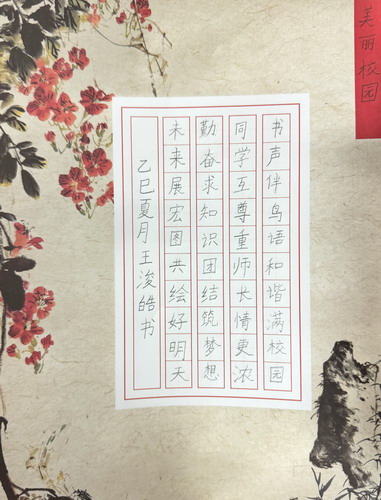 美丽校园
书声伴鸟语和谐满校园
同学互尊重师长情更浓
勤奋求知识团结筑梦想
未来展宏图共绘好明天
乙巳夏月王浚皓书